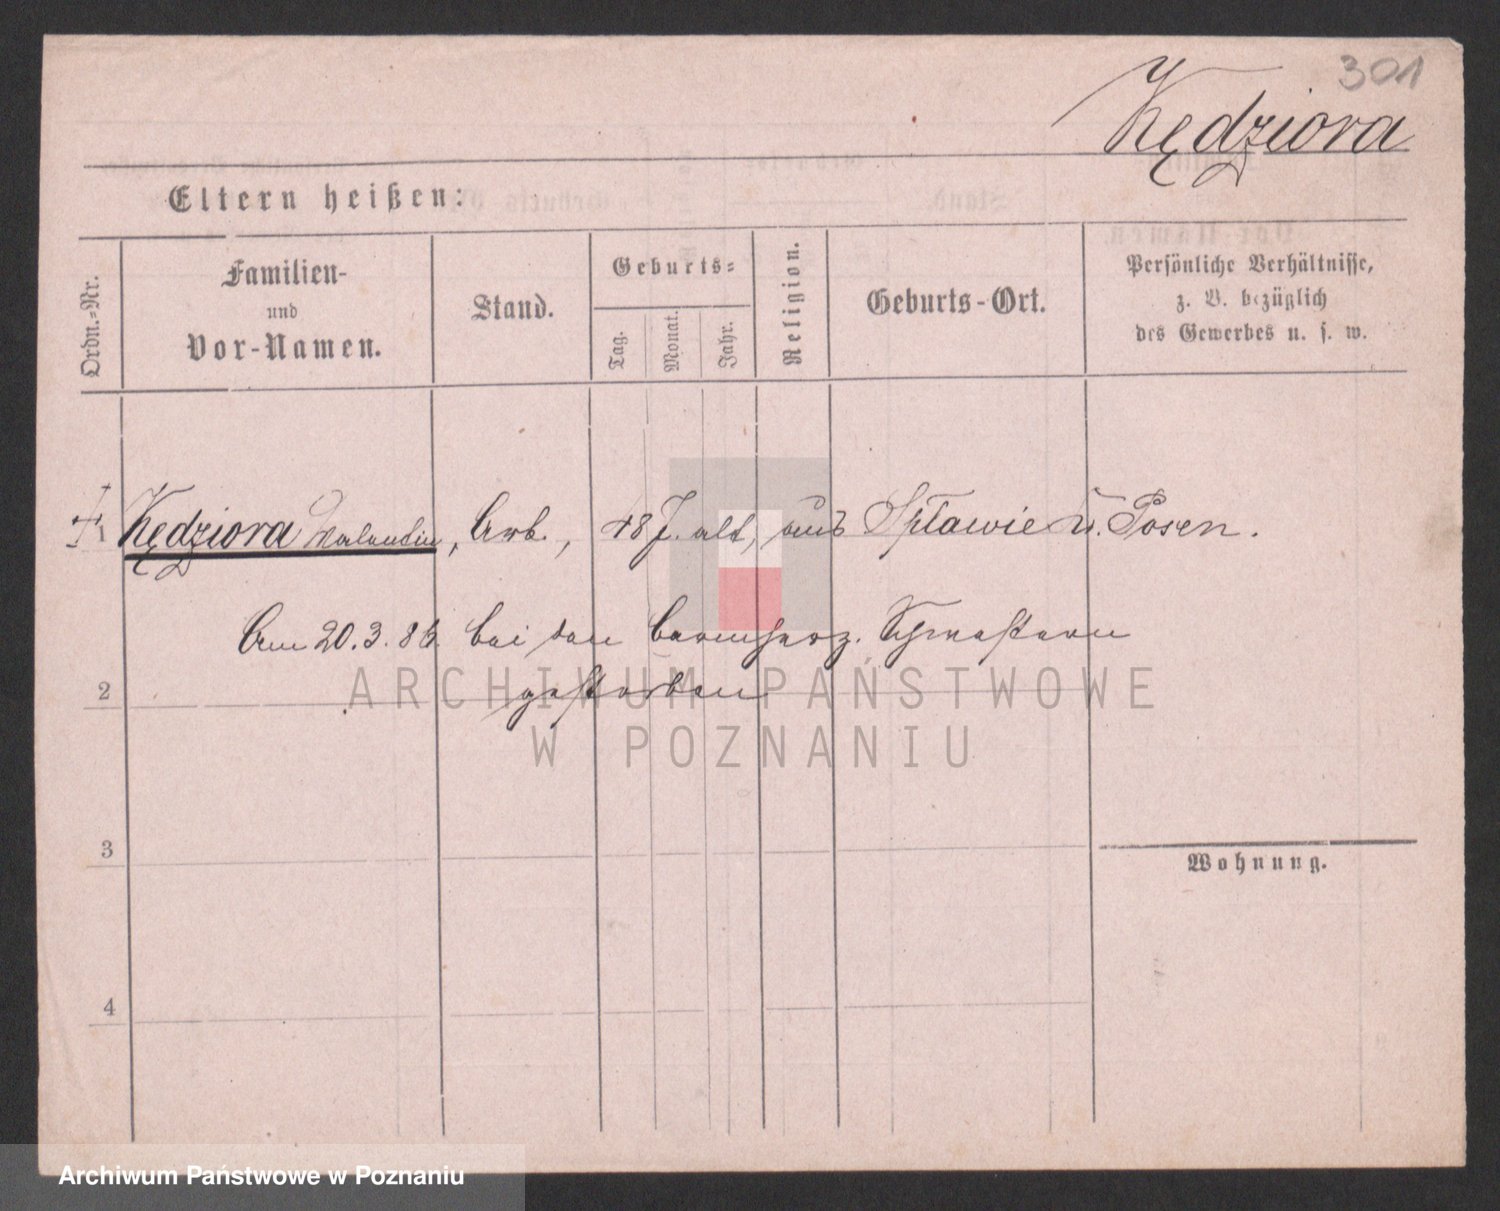 301
Kędziora
Eltern heißen:
Ordn.-Nr.
Familien-
und
Vor-Namen.
Stand.
Geburts-
Tag.
Monat.
Jahr.
Religion.
Geburts-Ort.
Persönliche Verhältnisse,
z. B. bezüglich
des Gewerbes u. s. w.
1 Kędziora Valentin, Arb., 18 J. alt, aus Spławie b. Posen.
Am 20.3.86. bei den barmherz. Schwestern
gestorben
2
3
4
Wohnung.
ARCHIWUM PAŃSTWOWE
W POZNANIU
Archiwum Państwowe w Poznaniu